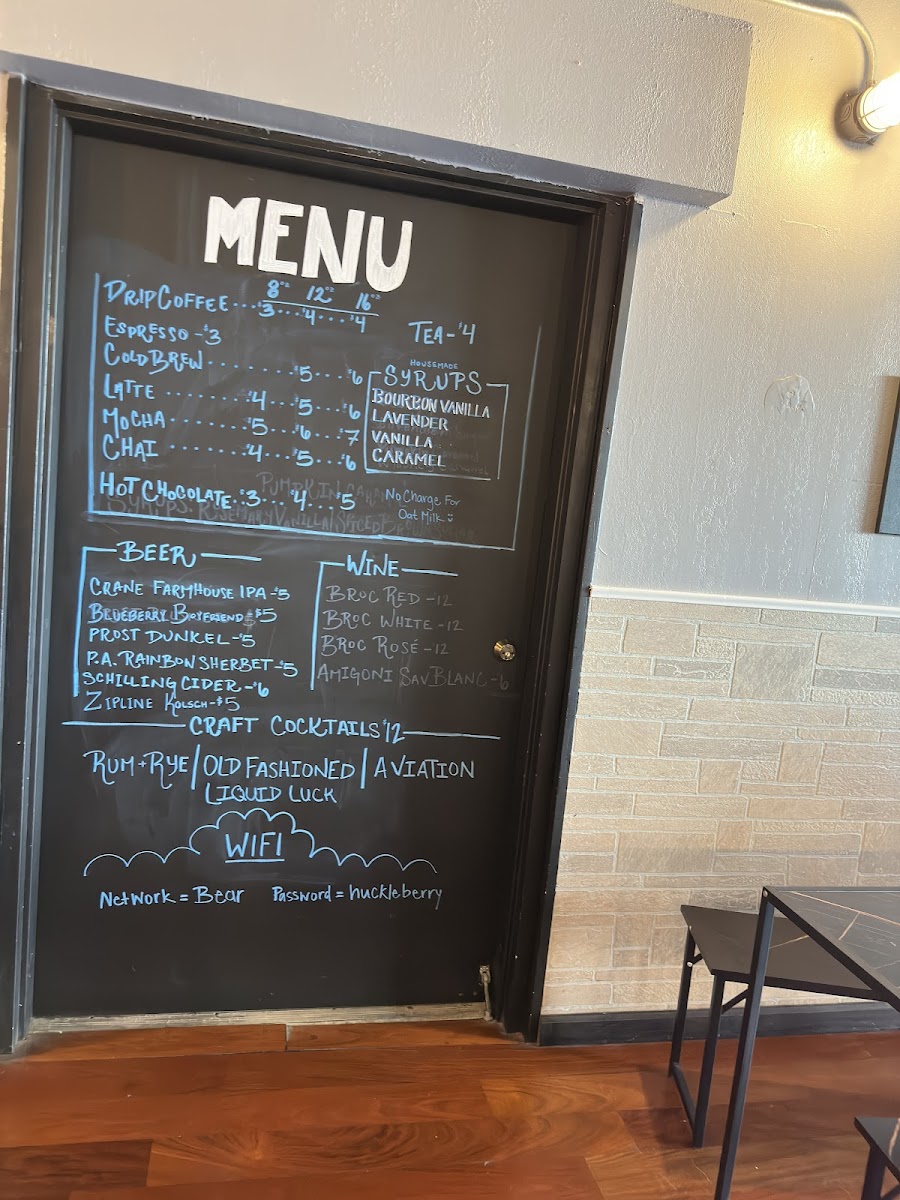 MENU
8oz 12oz 16oz
DRIP COFFEE...$3...$4....$4
ESPRESSO-$3
COLD BREW........$5...$6
LATTE.......$4...$5...$6
MOCHA.......$5...$6...$7
CHAI.......$4...$5...$6
HOT CHOCOLATE..$3...$4...$5
TEA-$4
HOUSEMADE
SYRUPS
BOURBON VANILLA
LAVENDER
VANILLA
CARAMEL
No Charge For
Oat Milk
BEER
CRANE FARMHOUSE IPA-$5
BLUEBERRY BOYFRIEND-$5
PROST DUNKEL-$5
P.A. RAINBOW SHERBET-$5
SCHILLING CIDER-$6
ZIPLINE KOLSCH-$5
WINE
BROC RED-12
BROC WHITE-12
BROC ROSÉ-12
AMIGONI SAV BLANC-6
CRAFT COCKTAILS $12
RUM+RYE | OLD FASHIONED | AVIATION
LIQUID LUCK
WIFI
Network = Bear Password = huckleberry